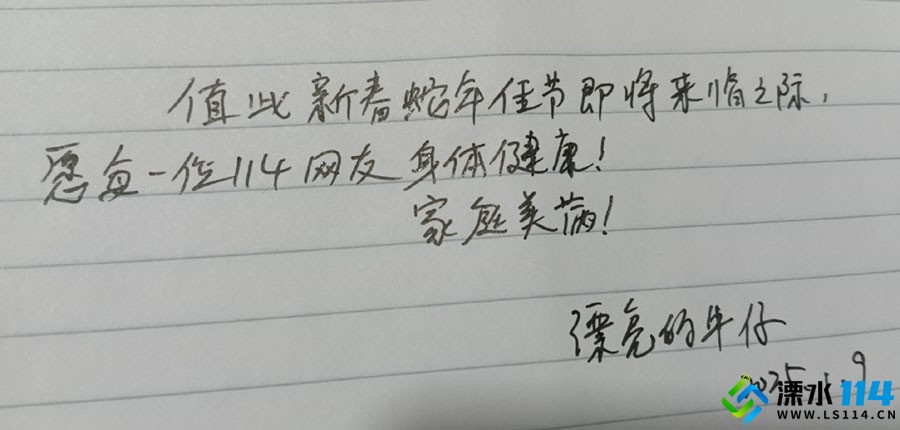 值此新春蛇年佳节即将来临之际，
愿每一位114网友身体健康！
家庭美满！
漂亮的牛仔
2025.1.9
溧水114
WWW.LS114.CN